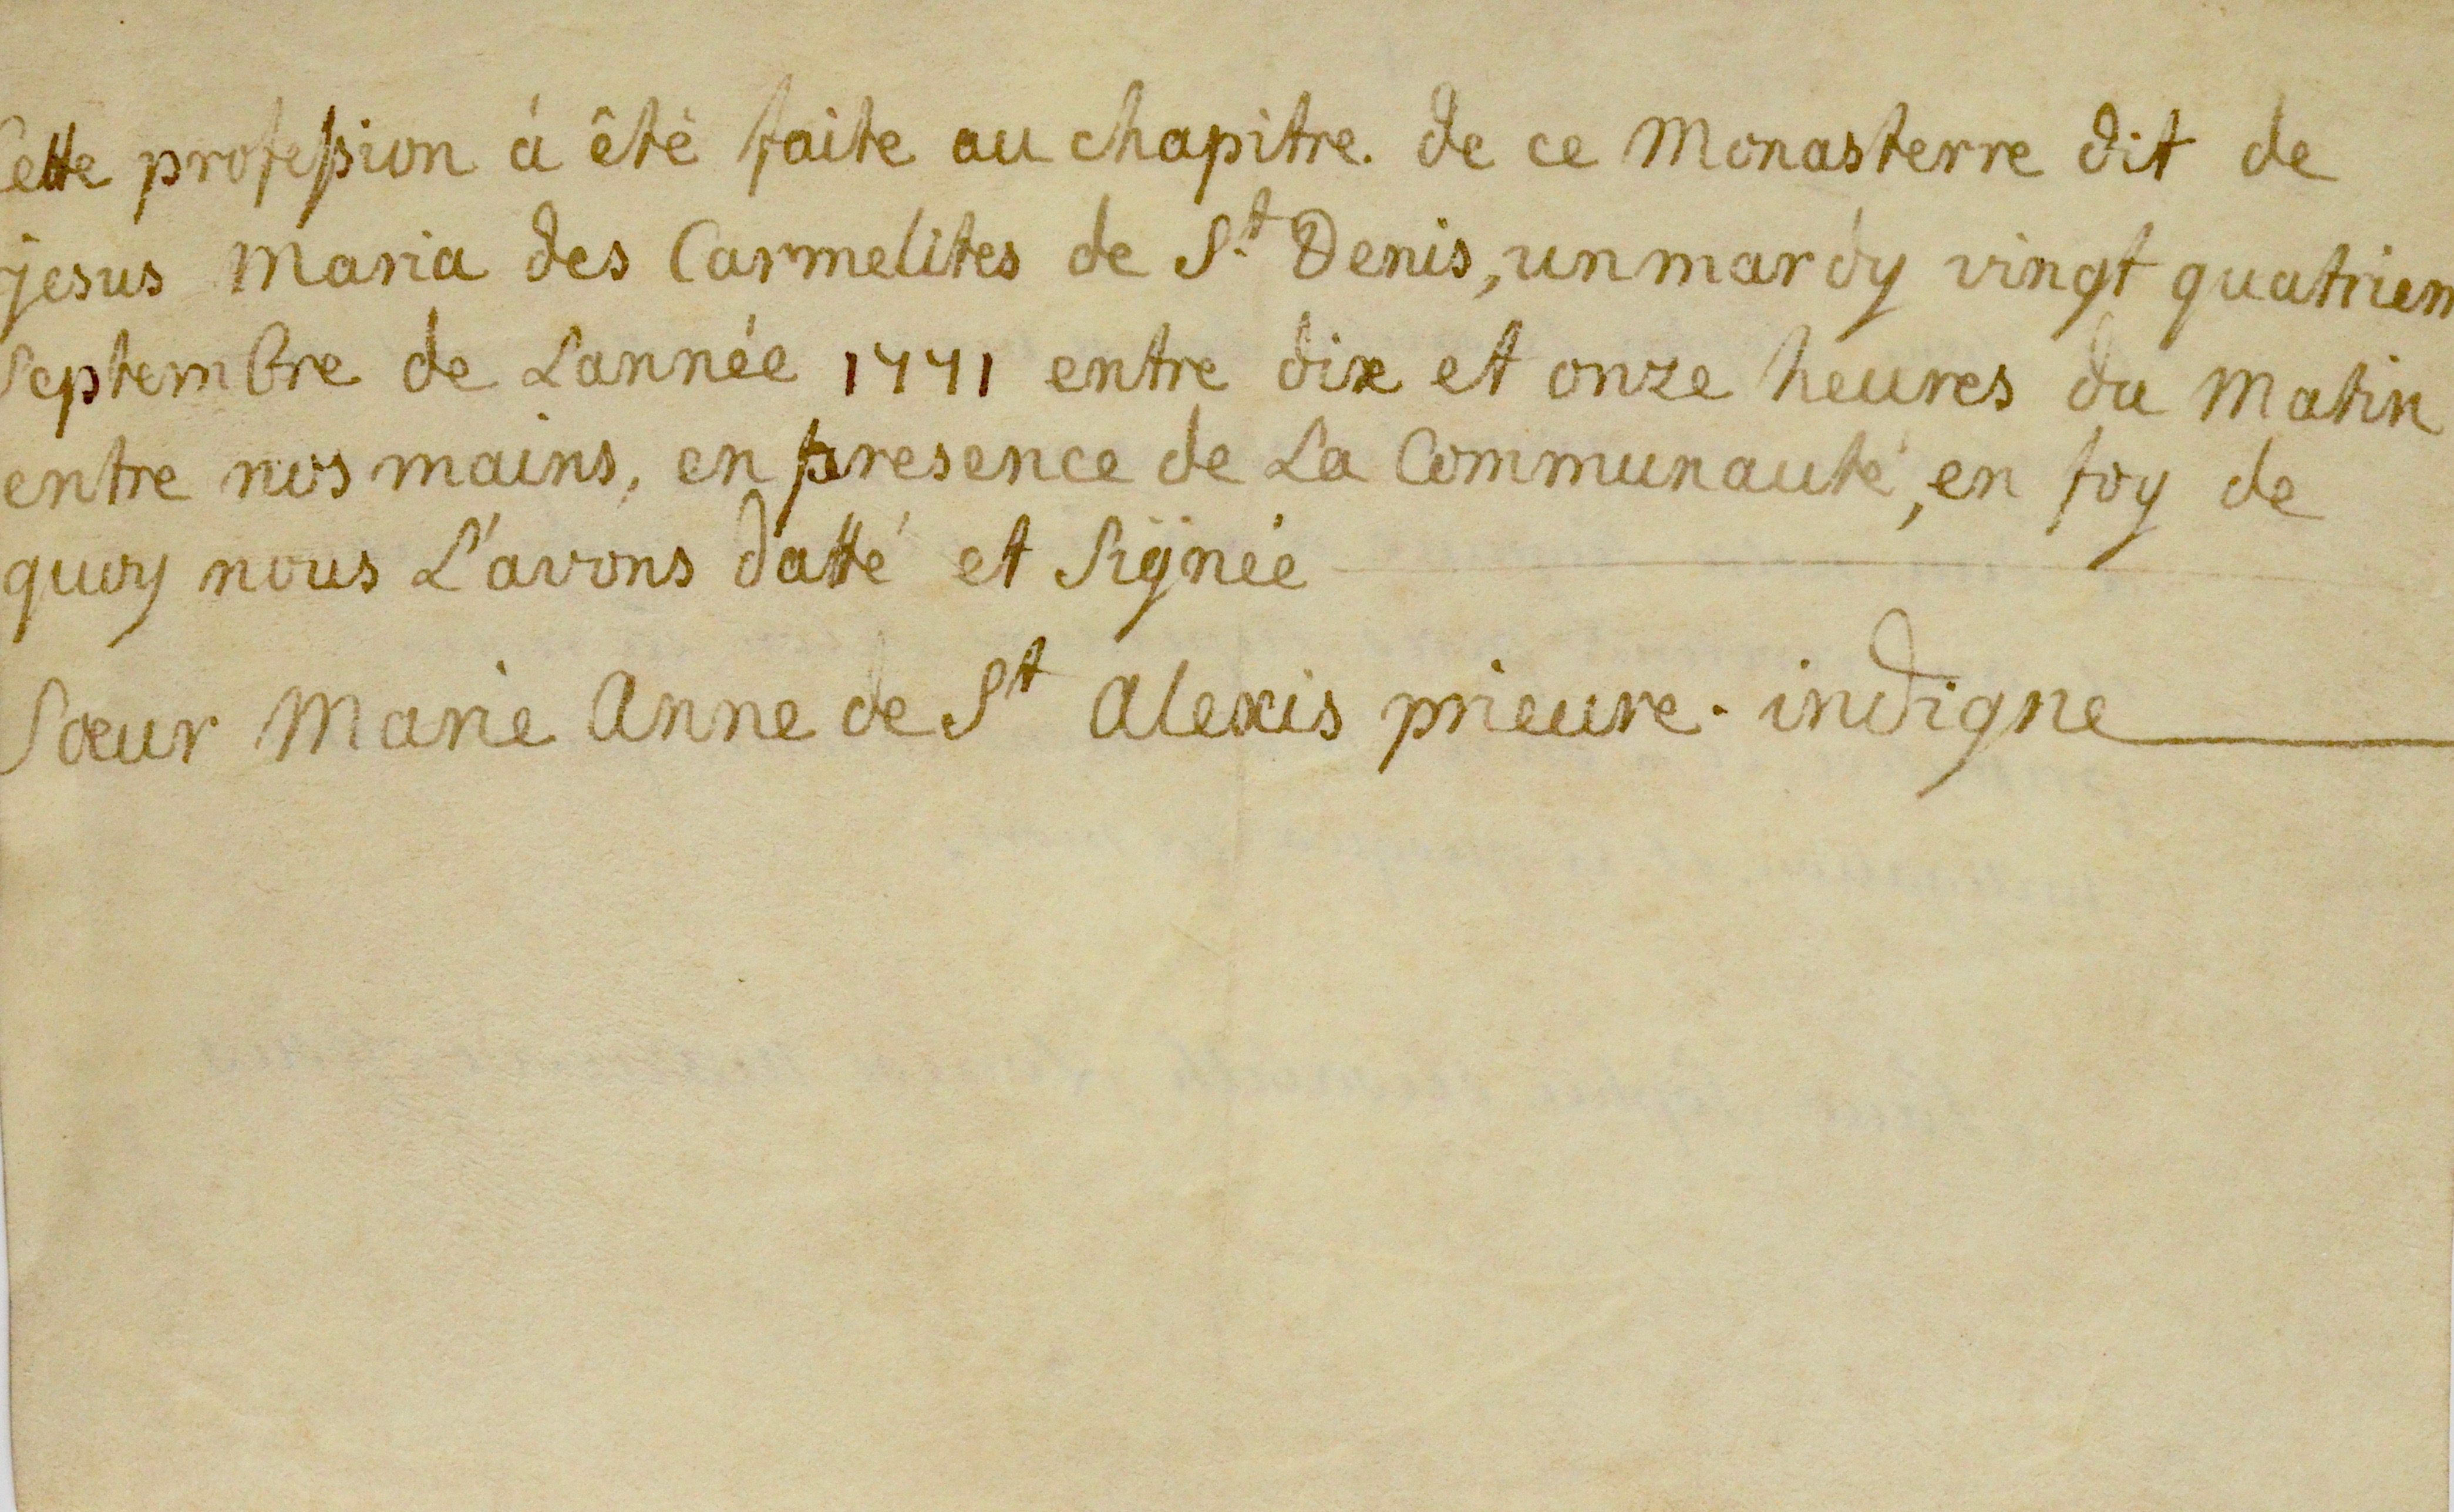 Cette profession à êtè faite au chapitre. de ce Monasterre dit de
jesus Maria des Carmelites de St. Denis, un mardy vingt quatriem
Septembre de Lannèe 1771 entre dix et onze heures du Matin
entre nos mains, en presence de La Communauté, en foy de
quoy nous L'avons datté et Signèe
Sœur Marie Anne de St Alexis prieure. indigne